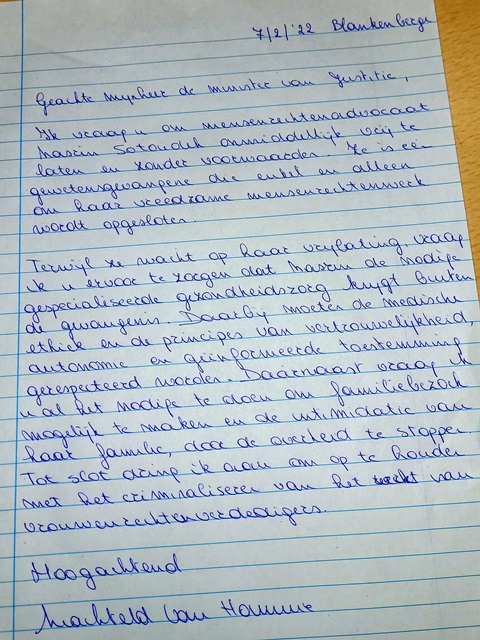 7/2/'22 Blankenberge
Geachte mijnheer de minister van Justitie,
Ik vraag u om mensenrechtenadvocaat
Nasrin Sotoudeh onmiddellijk vrij te
laten en zonder voorwaarden. Ze is een
gewetensgevangene die enkel en alleen
om haar vreedzame mensenrechtenwerk
wordt opgesloten.
Terwijl ze wacht op haar vrijlating, vraag
ik u ervoor te zorgen dat Nasrin de nodige
gespecialiseerde gezondheidszorg krijgt buiten
de gevangenis. Daarbij moeten de medische
ethiek en de principes van vertrouwelijkheid,
autonomie en geïnformeerde toestemming
gerespecteerd worden. Daarnaast vraag ik
u al het nodige te doen om familiebezoek
mogelijk te maken en de intimidatie van
haar familie, door de overheid te stoppen.
Tot slot dring ik aan om op te houden
met het criminaliseren van het werk van
vrouwenrechtenverdedigers.
Hoogachtend
Machteld Van